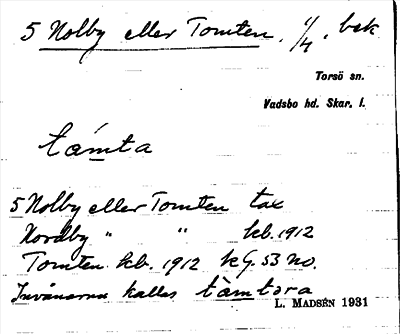 5 Nolby eller Tomten. 1/4, bek
Torsö sn.
Vadsbo hd. Skar. l.
támta
5 Nolby eller Tomten tax
Nordby " " kb. 1912
Tomten kb. 1912 kG. 53 no.
Invånarna kallas tàmtəra
L. MADSÉN 1931